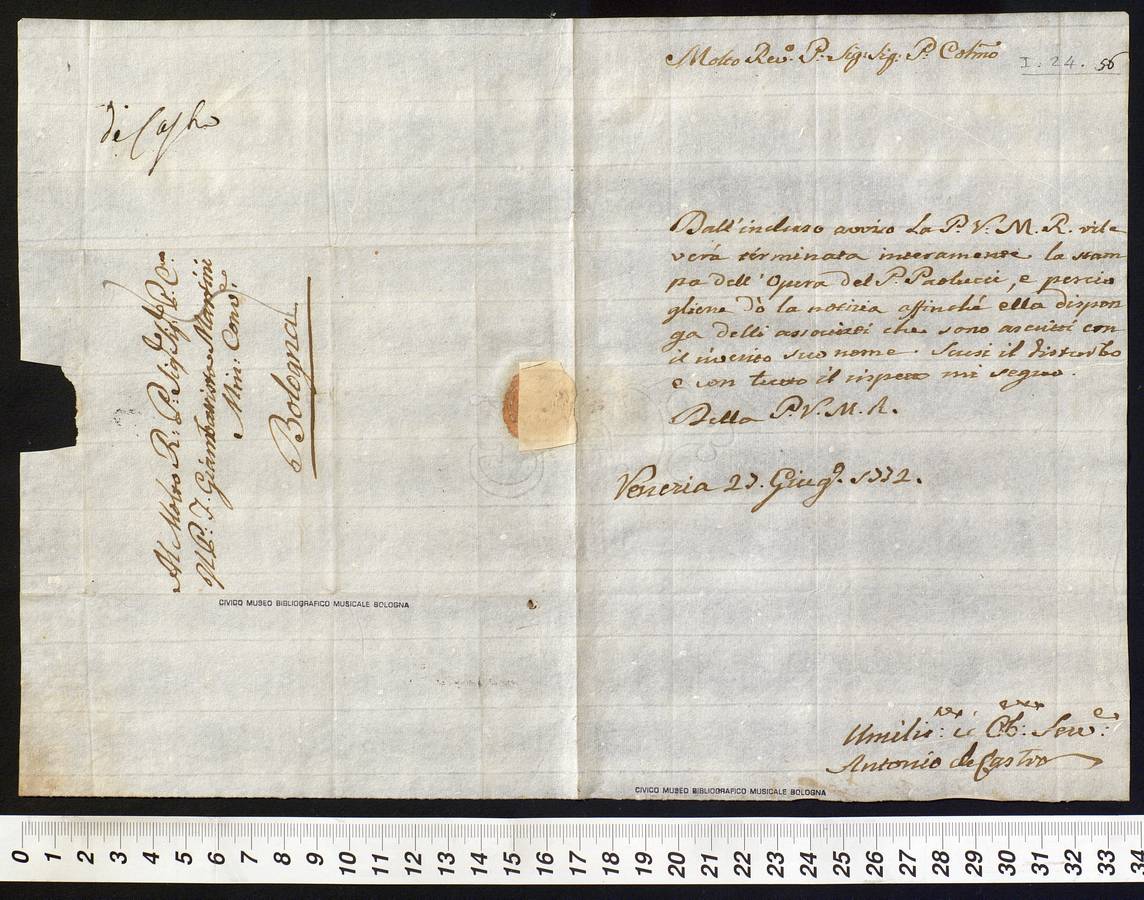 de Castro
Al Molto R: P: Sig: Sig: P: C:
Il P: F: Giambattista Martini
Min: Conv:
Bologna
CIVICO MUSEO BIBLIOGRAFICO MUSICALE BOLOGNA
Molto Revo. P: Sig: Sig: P: Colmo
I. 24. 56
Dall'incluso avviso La P. V. M. R. rile
verà terminata interamente la stam
pa dell' Opera del P. Paolucci, e perciò
gliene dò la notizia affinché ella dispon
ga delli associati che sono ascritti con
il riverito suo nome. Scusi il disturbo
e con tutto il rispetto mi segno.
Della P. V. M. R.
Venezia 27. Giug.o 1772.
Umilis: Ob: Serv:e
Antonio de Castro
CIVICO MUSEO BIBLIOGRAFICO MUSICALE BOLOGNA
0 1 2 3 4 5 6 7 8 9 10 11 12 13 14 15 16 17 18 19 20 21 22 23 24 25 26 27 28 29 30 31 32 33 34